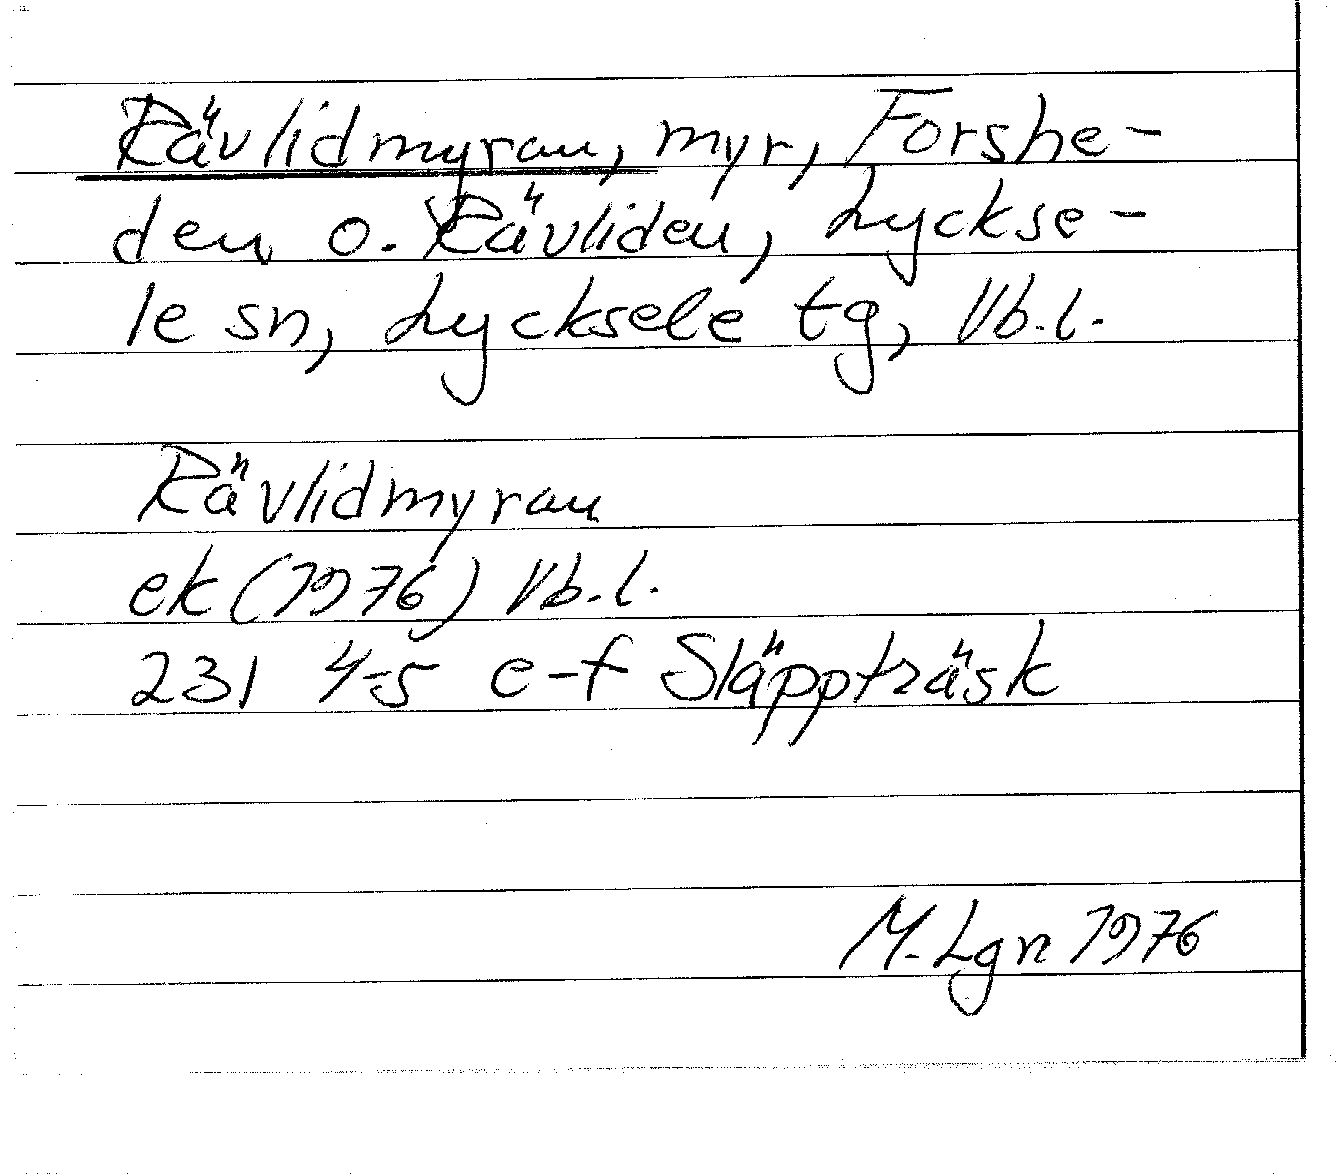 Rävlidmyran, myr, Forshe-
den o. Rävliden, Lyckse-
le sn, Lycksele tg, Vb.l.
Rävlidmyran
ek (1976) Vb.l.
231 4-5 e-f Släppträsk
M. Lgn 1976